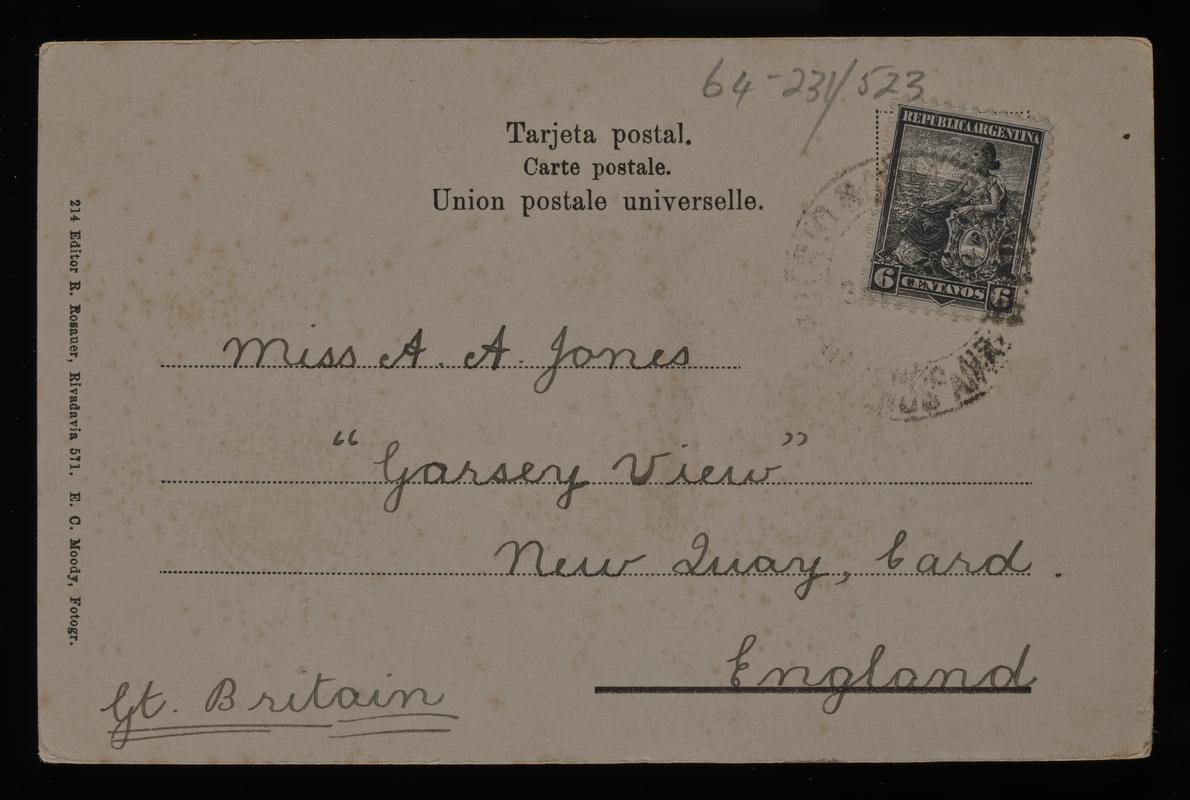 64-231/523
Tarjeta postal.
Carte postale.
Union postale universelle.
REPUBLICA ARGENTINA
6 CENTAVOS 6
Miss A. A. Jones
"Garsey View"
New Quay, Card.
England
Gt. Britain
214 Editor R. Rosauer, Rivadavia 571. E. C. Moody, Fotogr.